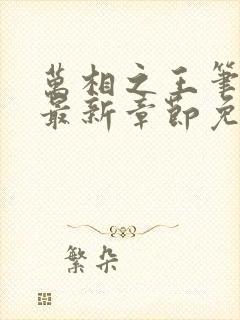 萬相之王筆
最新章節免
繁朵